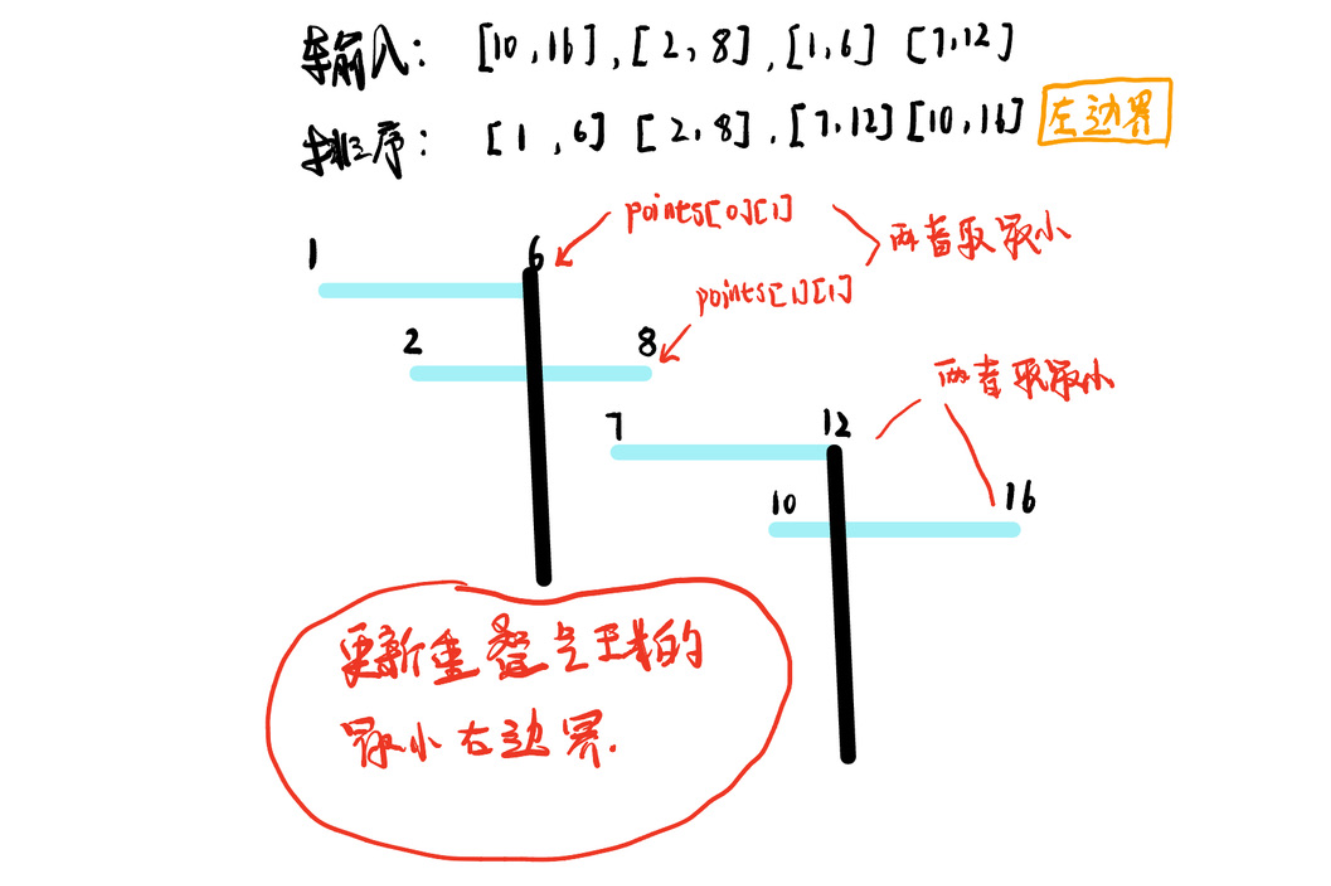 输入: [10,16],[2,8],[1,6] [7,12]
排序: [1,6] [2,8],[7,12][10,16] 左边界
points[0][1]
两者取最小
1 6
points[1][1]
2 8
两者取最小
7 12
10 16
更新重叠气球的
最小右边界.